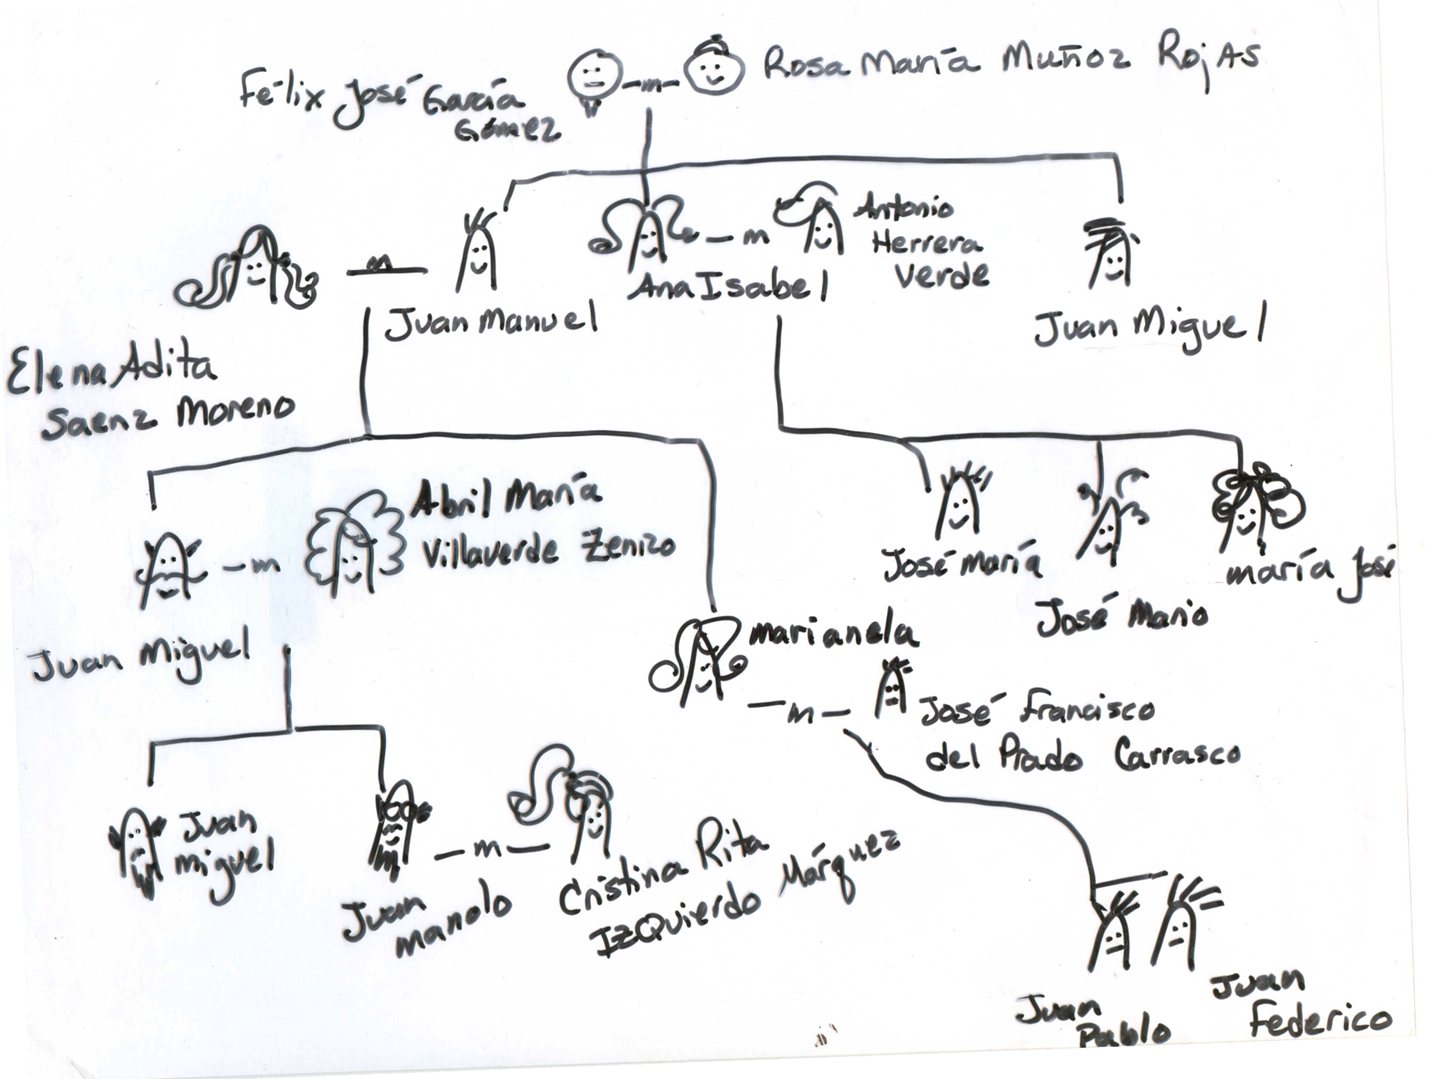 Félix José García
Gómez
m
Rosa María Muñoz Rojas
m
Juan Manuel
Ana Isabel
m
Antonio
Herrera
Verde
Juan Miguel
Elena Adita
Saenz Moreno
Juan Miguel
m
Abril María
Villaverde Zenizo
marianela
m
José Francisco
del Prado Carrasco
José María
José Mario
maría José
Juan
miguel
Juan
manolo
m
Cristina Rita
IZQuierdo Márquez
Juan
Pablo
Juan
Federico